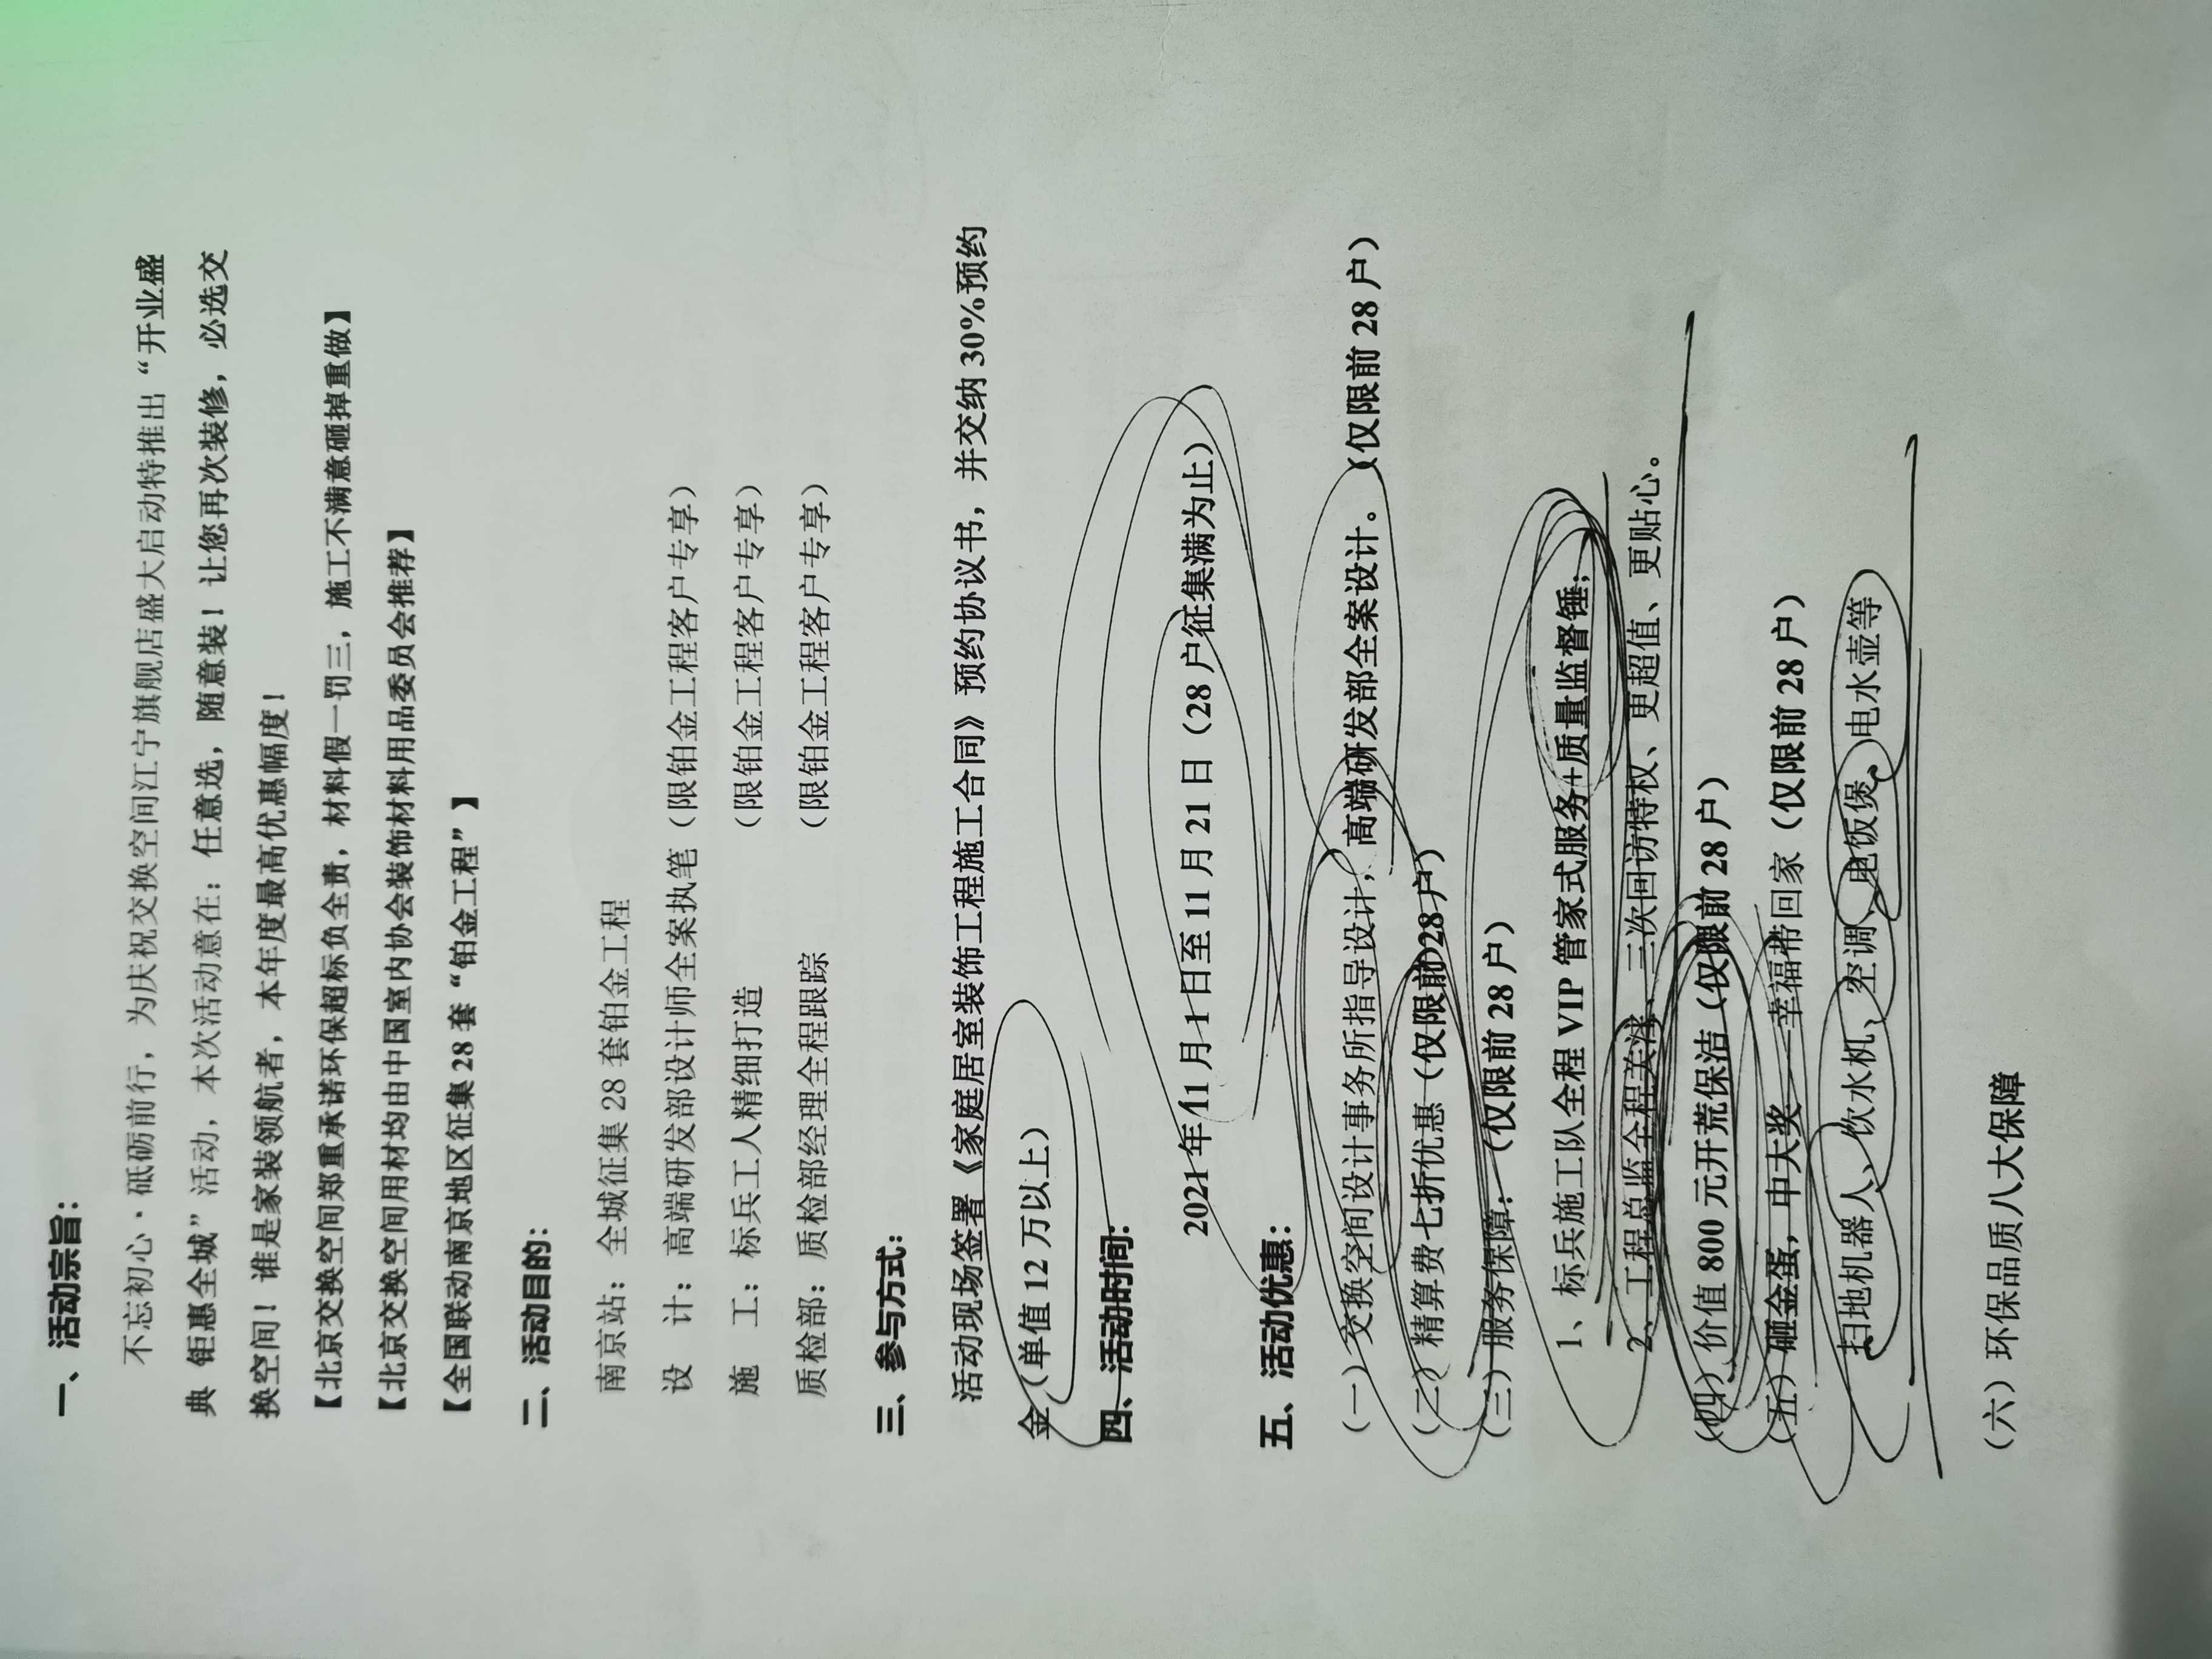 一、活动宗旨：
不忘初心、砥砺前行，为庆祝交换空间江宁旗舰店盛大启动特推出“开业盛
典 钜惠全城”活动，本次活动意在：任意选，随意装！让您再次装修，必选交
换空间！谁是家装领航者，本年度最高优惠幅度！
【北京交换空间郑重承诺环保超标负全责，材料假一罚三，施工不满意砸掉重做】
【北京交换空间用材均由中国室内协会装饰材料用品委员会推荐】
【全国联动南京地区征集 28 套“铂金工程”】
二、活动目的：
南京站：全城征集 28 套铂金工程
设 计：高端研发部设计师全案执笔（限铂金工程客户专享）
施 工：标兵工人精细打造 （限铂金工程客户专享）
质检部：质检部经理全程跟踪 （限铂金工程客户专享）
三、参与方式：
活动现场签署《家庭居室装饰工程施工合同》预约协议书，并交纳 30%预约
金（单值 12 万以上）
四、活动时间：
2021 年 11 月 1 日至 11 月 21 日（28 户征集满为止）
五、活动优惠：
（一）交换空间设计事务所指导设计，高端研发部全案设计。（仅限前 28 户）
（二）精算费七折优惠（仅限前 28 户）
（三）服务保障：（仅限前 28 户）
1、标兵施工队全程 VIP 管家式服务+质量监督锤；
2、工程总监全程关注、三次回访特权、更超值、更贴心。
（四）价值 800 元开荒保洁（仅限前 28 户）
（五）砸金蛋，中大奖——幸福带回家（仅限前 28 户）
扫地机器人、饮水机、空调、电饭煲、电水壶等
（六）环保品质八大保障